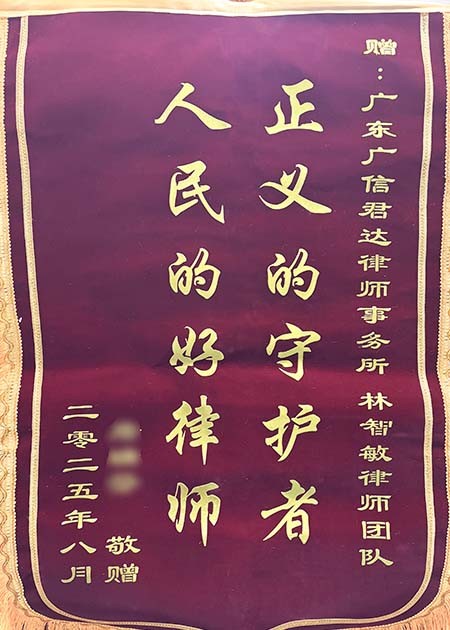 赠：广东广信君达律师事务所 林智敏律师团队
正义的守护者
人民的好律师
敬赠
二零二五年八月